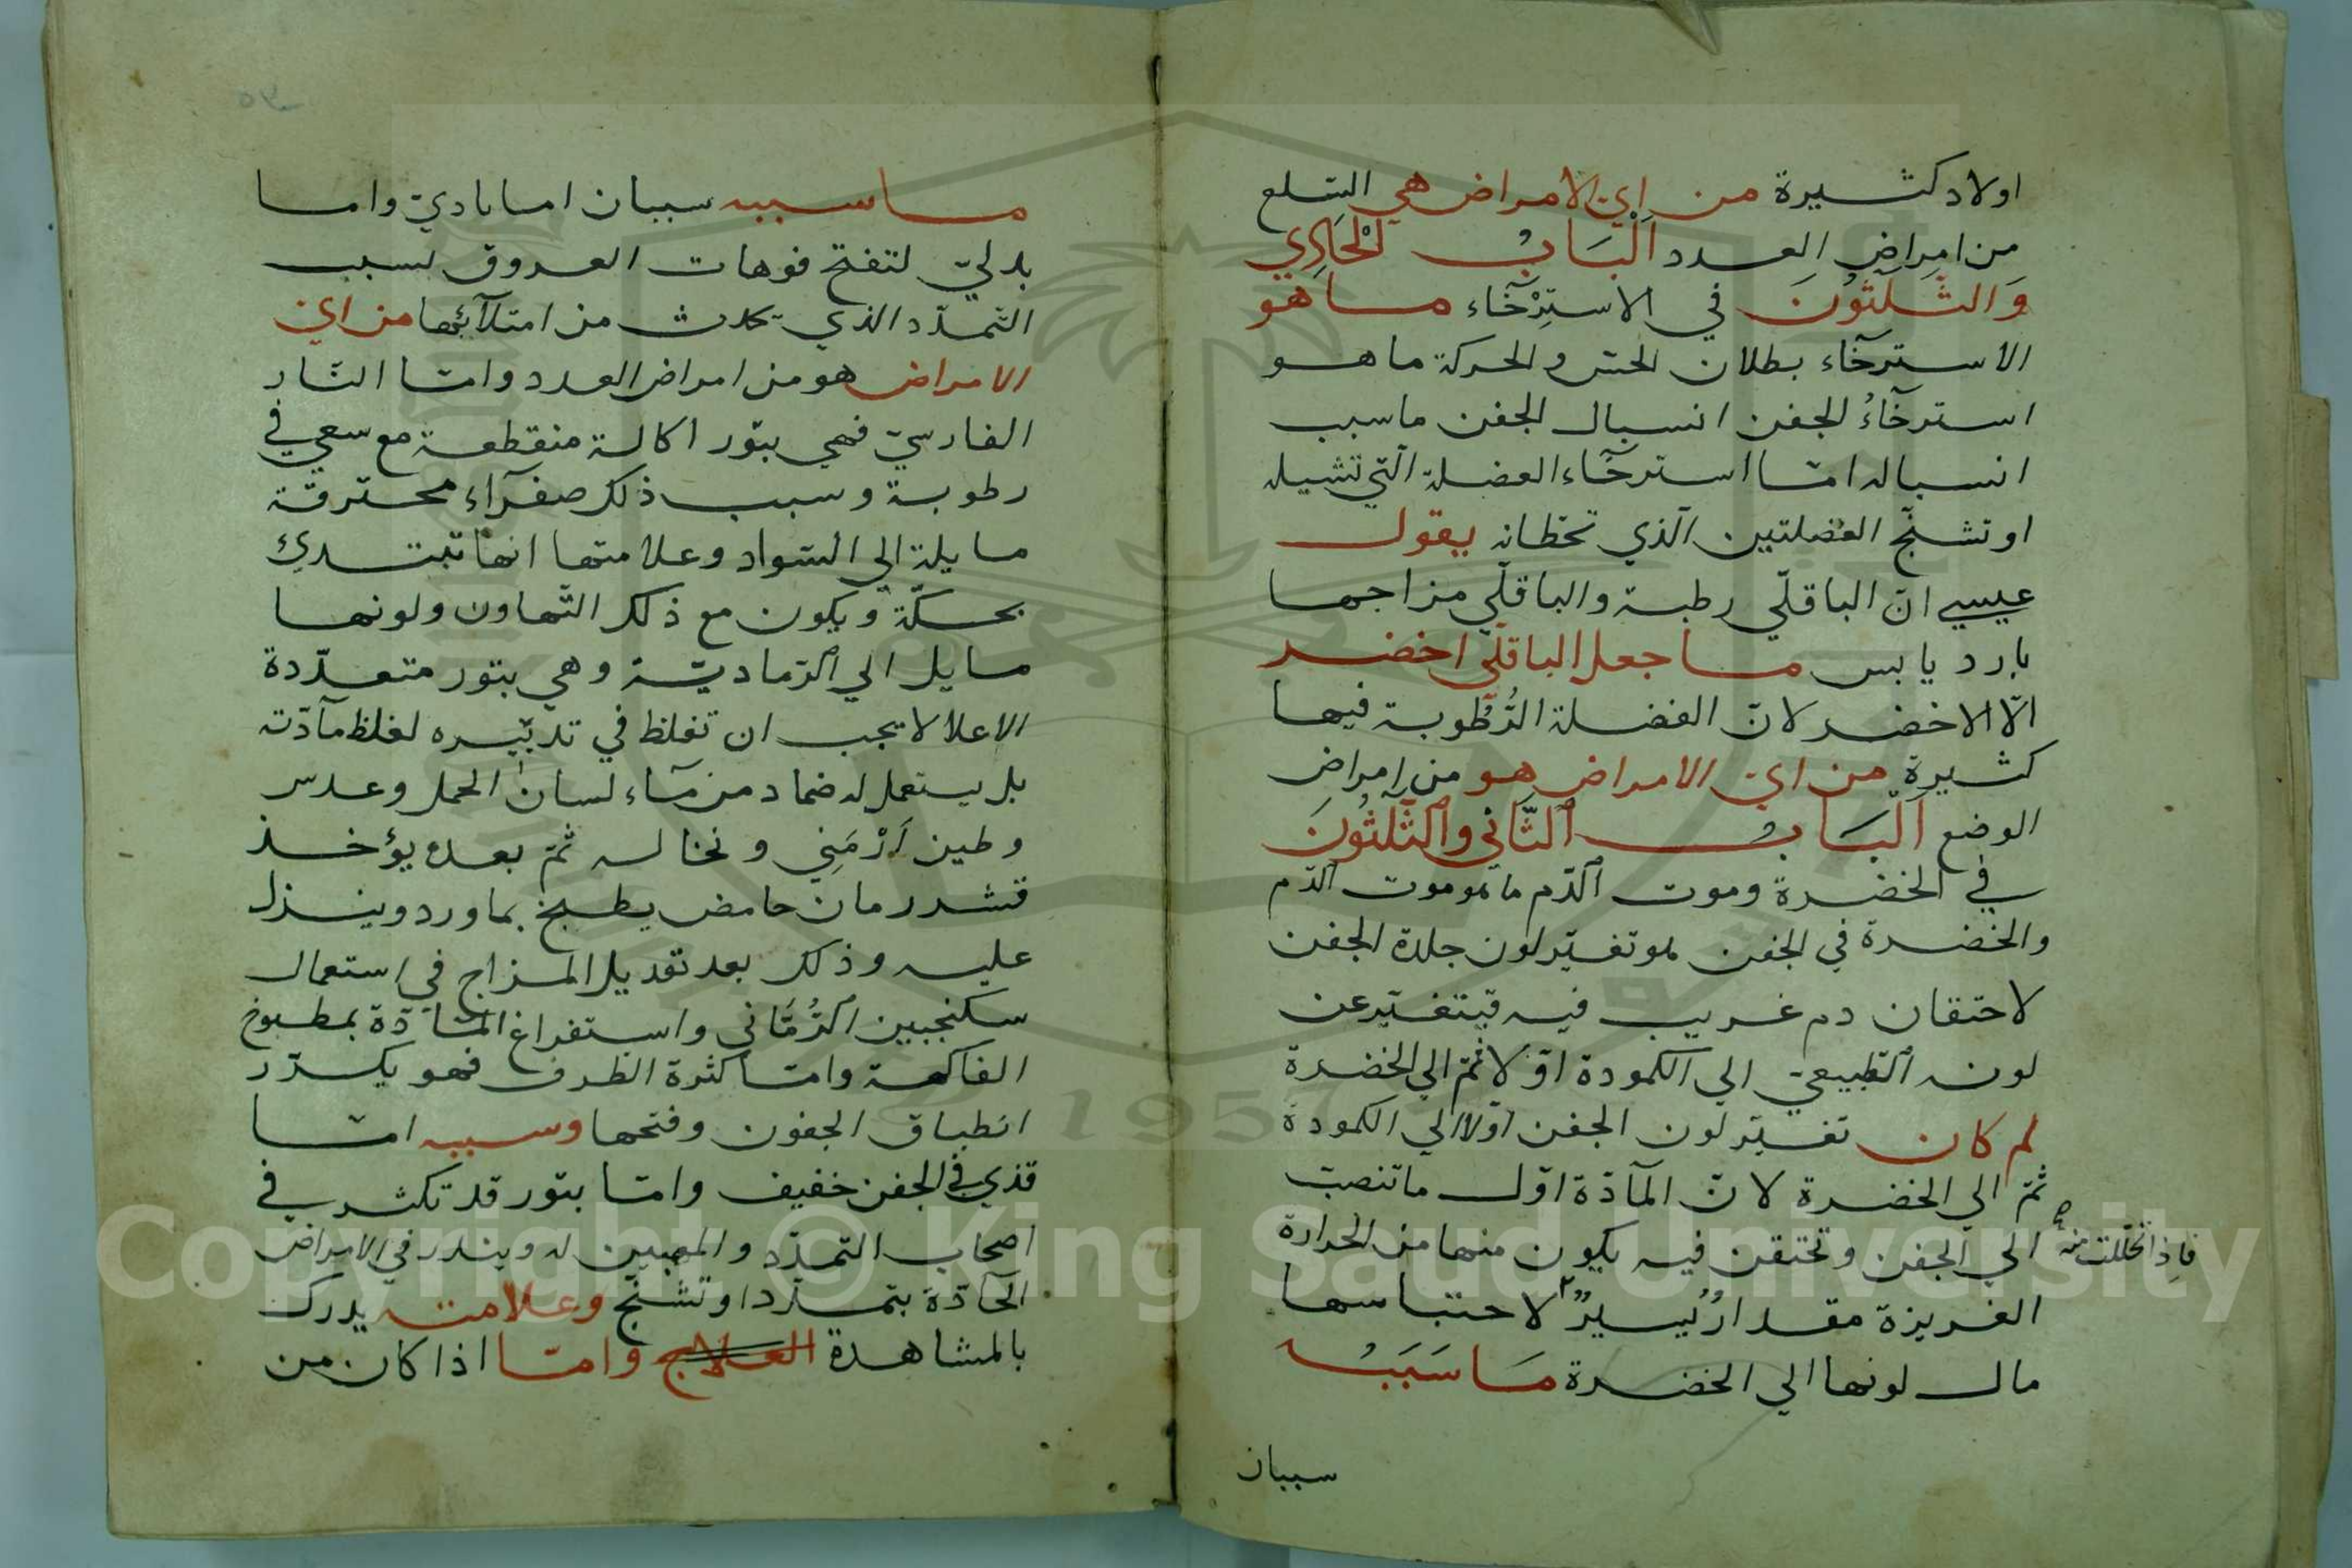 اولاد كثيرة من اي الامراض هي السلع
من امراض العدد اَلْبَابُ الْحَادِي
وَالثَّلَثُونَ في الاسترخآء ما هو
الاسترخآء بطلان الحسّ والحركة ما هو
استرخآءُ الجفن انسبال الجفن ما سبب
انسباله امّا استرخآء العضلة الّتي تشيله
او تشنّج العضلتين الّذي تحطانه يقول
عيسي انّ الباقلّي رطبة والباقلّي مزاجها
بارد يابس ما جعل الباقلّي اخضر
الّا الاخضر لانّ الفضلة الرُّطُوبة فيها
كثيرة من ايّ الامراض هو من امراض
الوضع اَلْبَابُ الثَّاني والثَّلَثُونَ
في الخضرة وموت الدّم ما هو موت الدّم
والخضرة في الجفن هو تغيّر لون جلدة الجفن
لاحتقان دم غريب فيه فيتغيّر عن
لونه الطّبيعيّ الي الكمودة اوّلا ثمّ الي الخضرة
لم كان تغيّر لون الجفن اوّلا الي الكمودة
ثمّ الي الخضرة لانّ المآدّة اوّل ما تنصبّ
الي الجفن وتحتقن فيه يكون منها من الحرارة
فاذا تحللت منه
الغريزة مقدارٌ يسيرٌ لاحتباسها
مال لونها الي الخضرة مَا سَبَبُه
سببان
ما سببه سببان اما باديّ واما
بدليّ لتفتح فوهات العروق بسبب
التّمدّد الذي يحدث من امتلآئها من ايّ
الامراض هو من امراض العدد وامّا النّار
الفارسيّ فهي بثور اكالة منقطعة مع سعي في
رطوبة وسبب ذلك صفرآء محترقة
مايلة الي السّواد وعلامتها انها تبتدئ
بحكّة ويكون مع ذلك التّهاون ولونها
مايل الي الرّماديّة وهي بثور متعدّدة
الاعلا لا يجب ان تغلظ في تدبّيره لغلظ مآدّته
بل يستعمل له ضماد من مآء لسان الحمل وعدس
وطين اَرْمَنِي ونخاله ثمّ بعده يؤخذ
قشر رمان حامض يطبخ بماورد وينزل
عليه وذلك بعد تعديل المزاج في استعمال
سكنجبين الرُّمَّاني واستفراغ المآدّة بمطبوخ
الفاكهة وامّا كثرة الطرف فهو يكدّر
انطباق الجفون وفتحها وسببه امّا
قذي في الجفن خفيف وامّا بثور قد تكثر في
اصحاب التمدّد والمهيين له ويندر في الامراض
الحآدّة بتمدّد او تشنّج وعلامته يدرك
بالمشاهدة العلاج وامّا اذا كان من